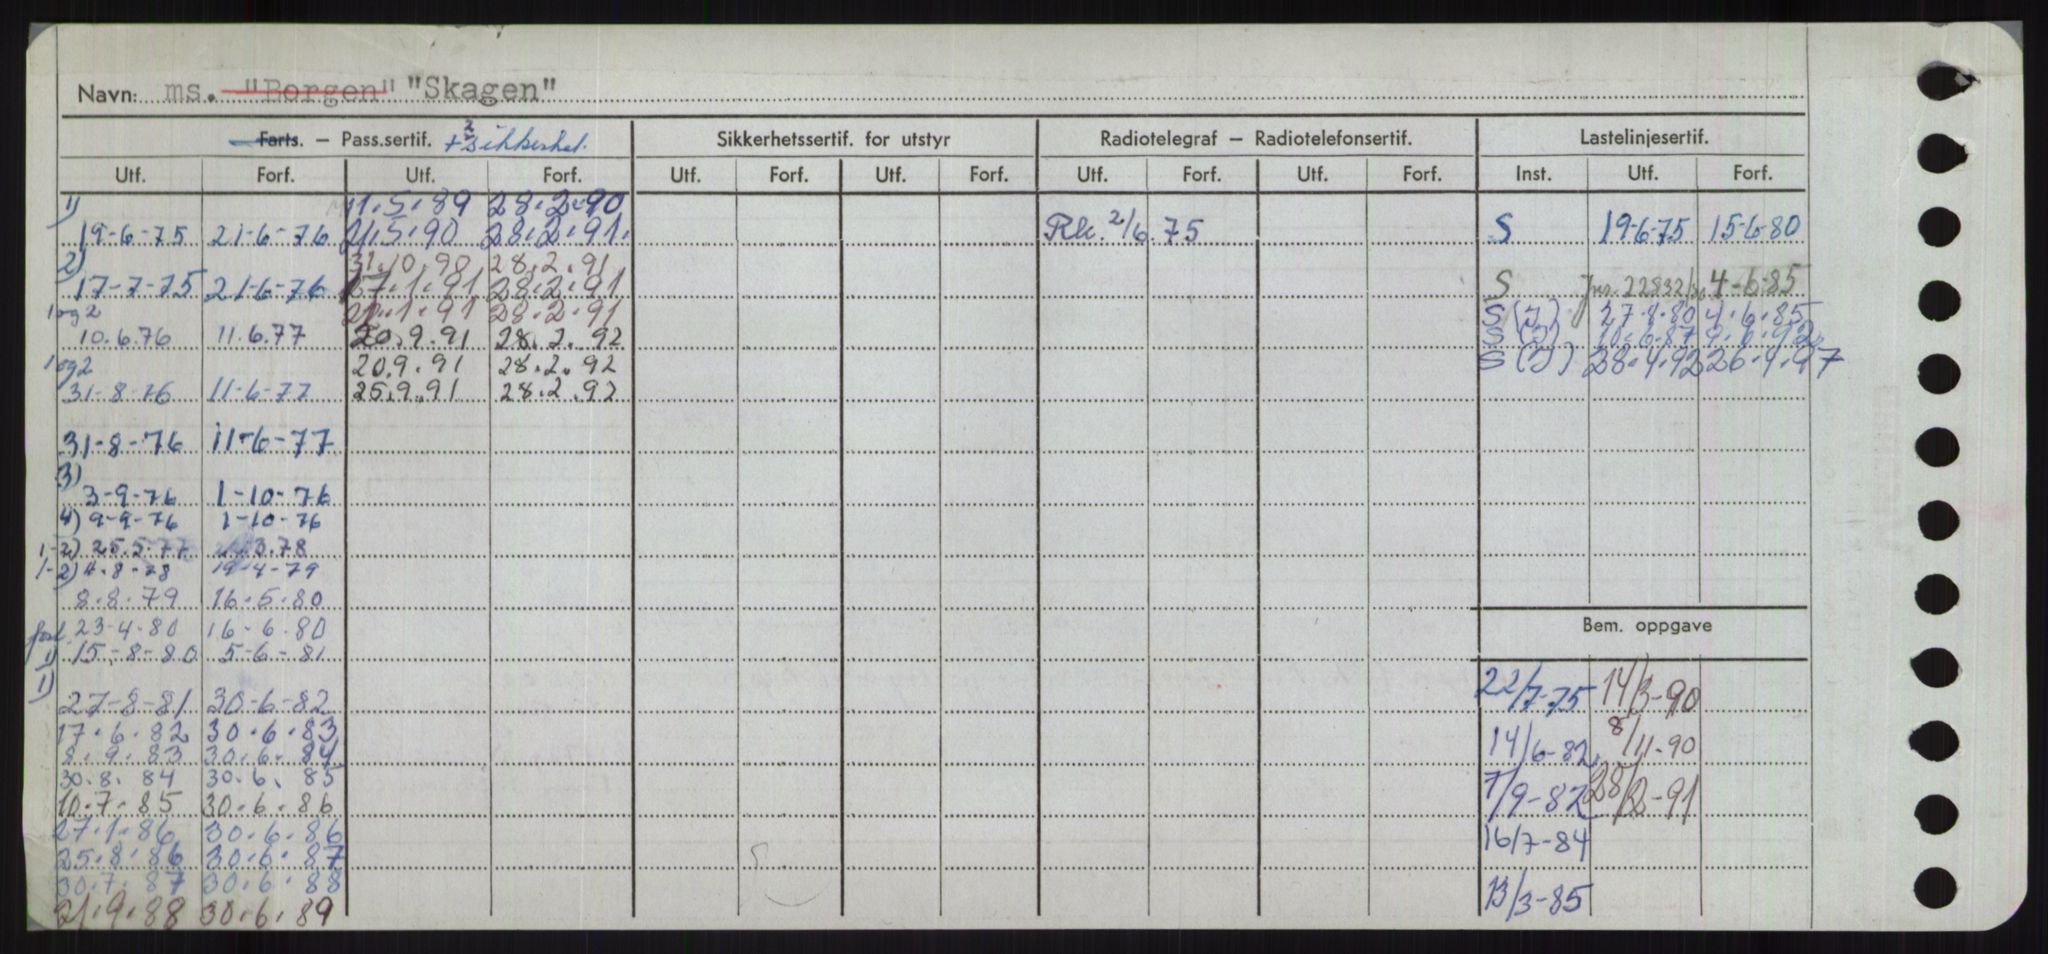 Navn: ms. "Borgen" "Skagen"
Farts. – Pass.sertif. + Sikkerhet.
Sikkerhetssertif. for utstyr
Radiotelegraf – Radiotelefonsertif.
Lastelinjesertif.
Utf. Forf. Utf. Forf. Utf. Forf. Utf. Forf. Utf. Forf. Utf. Forf. Inst. Utf. Forf.
1) 11.5.89 28.2.90
19-6-75 21-6-76 21.5.90 28.2.91. Rk. 2/6.75 S 19-6-75 15-6-80
2) 31.10.90 28.2.91
17-7-75 21-6-76 17.1.91 28.2.91 S 4-6-85
1 og 2 28.2.91 S (I) 27.8.80 4.6.85
10.6.76 11.6.77 20.9.91 28.2.92 S (I) 10.6.87
1 og 2 20.9.91 28.2.92 S (I) 28.4.92 26.4.97
31-8-76 11-6-77 25.9.91 28.2.92
31-8-76 11-6-77
3)
3-9-76 1-10-76
4) 9-9-76 1-10-76
1-2) 25.5.77 3.78
1-2) 4-8-78 19-4-79
8.8.79 16.5.80
23-4-80 16-6.80
1) 15-8-80 5-6-81
1)
27-8-81 30-6-82
17.6.82 30.6.83
8.9.83 30.6.84
30.8.84 30.6.85
10.7.85 30.6.86
27.1.86 30.6.86
25.8.86 30.6.87
30.7.87 30.6.88
21.9.88 30.6.89
Bem. oppgave
22/7-75 14/3-90
14/6-82 8/11-90
7/9-82 28/2-91
16/7-84
13/3-85